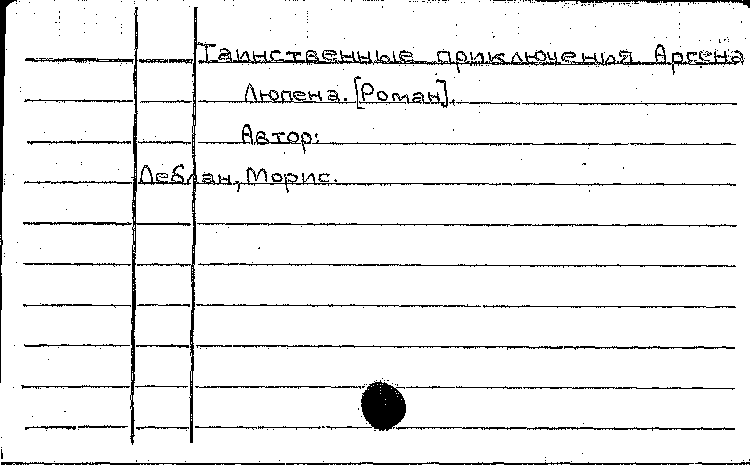 Таинственные приключения Арсена
Люпена. [Роман].
Автор:
Леблан, Морис.